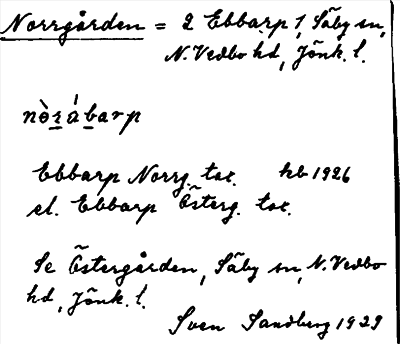 Norrgården = 2 Ebbarp 1, Säby sn,
N. Vedbo hd, Jönk. l.
nòɿábarp
Ebbarp Norrg. tot. hb 1926
el. Ebbarp Österg. tot.
Se Östergården, Säby sn, N. Vedbo
hd, Jönk. l.
Sven Sandberg 1929